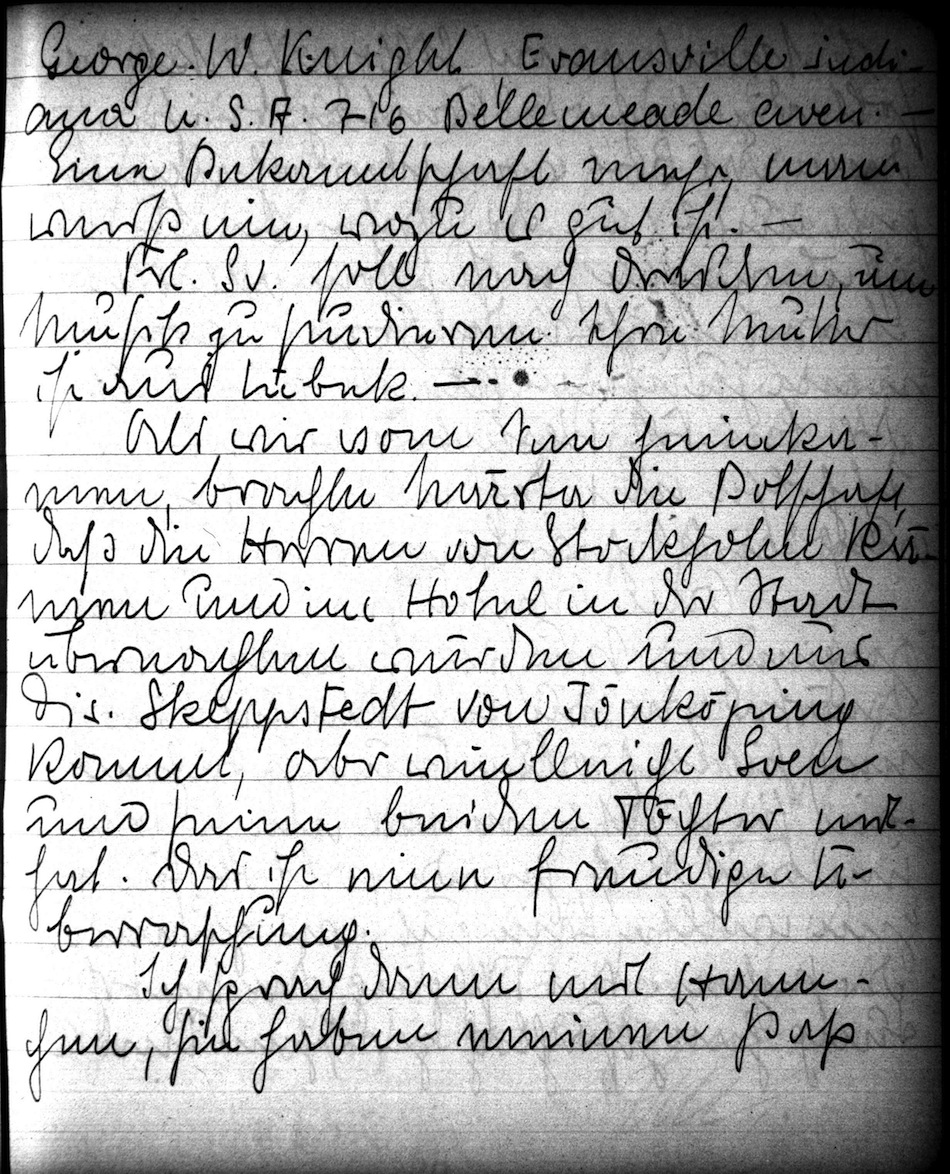 George. W. Knight Evansville indi-
ana U. S. A. 716 Bellemeade aven. —
Eine Bekanntschaft mehr, man
weiß nie, wozu es gut ist. —
Frl. Sv. soll nach Dresden, um
Musik zu studieren. Ihre Mutter
ist aus Lübek. —
Als wir vom Tee heimka-
men, brachte Märta die Botschaft,
daß die Herren von Stockholm kä-
men und im Hotel in der Stadt
übernachten würden und uns
Dis. Skeppstedt von Jönköping
kommt, aber vielleicht Sven
und seine beiden Töchter mit-
hat. Das ist eine freudige Ü-
berraschung.
Ich sprach dann mit Hann-
chen, sie haben meinen Paß